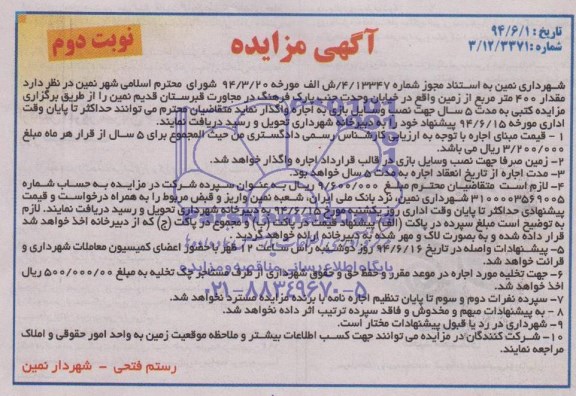 تاریخ: ۹۴/۶/۱
شماره: ۳/۱۲/۳۳۷۱
آگهی مزایده
نوبت دوم
شهرداری نمین به استناد مجوز شماره ۴/۱۳۳۴۷/ش الف مورخه ۹۴/۳/۲۰ شورای محترم اسلامی شهر نمین در نظر دارد
مقدار ۴۰۰ متر مربع از زمین واقع در خیابان وحدت جنب پارک فرهنگ در مجاورت قبرستان قدیم نمین را از طریق برگزاری
مزایده کتبی به مدت ۵ سال جهت نصب وسایل بازی به اجاره واگذار نماید متقاضیان محترم می توانند حداکثر تا پایان وقت
اداری مورخه ۹۴/۶/۱۵ پیشنهاد خود را به دبیرخانه شهرداری تحویل و رسید دریافت نمایند.
۱- قیمت مبنای اجاره با توجه به ارزیابی کارشناس رسمی دادگستری من حیث المجموع برای ۵ سال از قرار هر ماه مبلغ
۳/۲۰۰/۰۰۰ ریال می باشد.
۲- زمین صرفا جهت نصب وسایل بازی در قالب قرارداد اجاره واگذار خواهد شد.
۳- مدت اجاره از تاریخ انعقاد اجاره به مدت ۵ سال خواهد بود.
۴- لازم است متقاضیان محترم مبلغ ۹/۶۰۰/۰۰۰ ریال به عنوان سپرده شرکت در مزایده به حساب شماره
۳۱۰۰۰۰۳۵۶۹۰۰۵ نزد بانک ملی ایران، شعبه نمین واریز و قبض مربوط را به همراه درخواست و قیمت
پیشنهادی حداکثر تا پایان وقت اداری روز یکشنبه مورخ ۹۴/۶/۱۵ به دبیرخانه شهرداری تحویل و رسید دریافت نمایند. لازم
به توضیح است مبلغ سپرده در پاکت (الف) پیشنهاد قیمت در پاکت (ب) و مجموع در پاکت (ج) که از دبیرخانه اخذ خواهد شد
قرار داده شده و به صورت لاک و مهر شده به دبیرخانه ارائه خواهد گردید.
۵- پیشنهادات واصله در تاریخ ۹۴/۶/۱۶ روز دوشنبه راس ساعت ۱۲ ظهر با حضور اعضای کمیسیون معاملات شهرداری و
قرائت خواهد شد.
۶- جهت تخلیه مورد اجاره در موعد مقرر و حفظ حق و حقوق شهرداری از طرف مستاجر چک تخلیه به مبلغ ۵۰۰/۰۰۰/۰۰۰ ریال
اخذ خواهد شد.
۷- سپرده نفرات دوم و سوم تا پایان تنظیم اجاره نامه با برنده مزایده مسترد نخواهد شد.
۸- به پیشنهادات مبهم و مخدوش و فاقد سپرده ترتیب اثر داده نخواهد شد.
۹- شهرداری در رد یا قبول پیشنهادات مختار است.
۱۰- شرکت کنندگان در مزایده می توانند جهت کسب اطلاعات بیشتر و ملاحظه موقعیت زمین به واحد امور حقوقی و املاک
مراجعه نمایند.
رستم فتحی - شهردار نمین
پایگاه اطلاع رسانی مناقصه و مزایده
۰۲۱-۸۸۳۴۹۶۷۰-۵